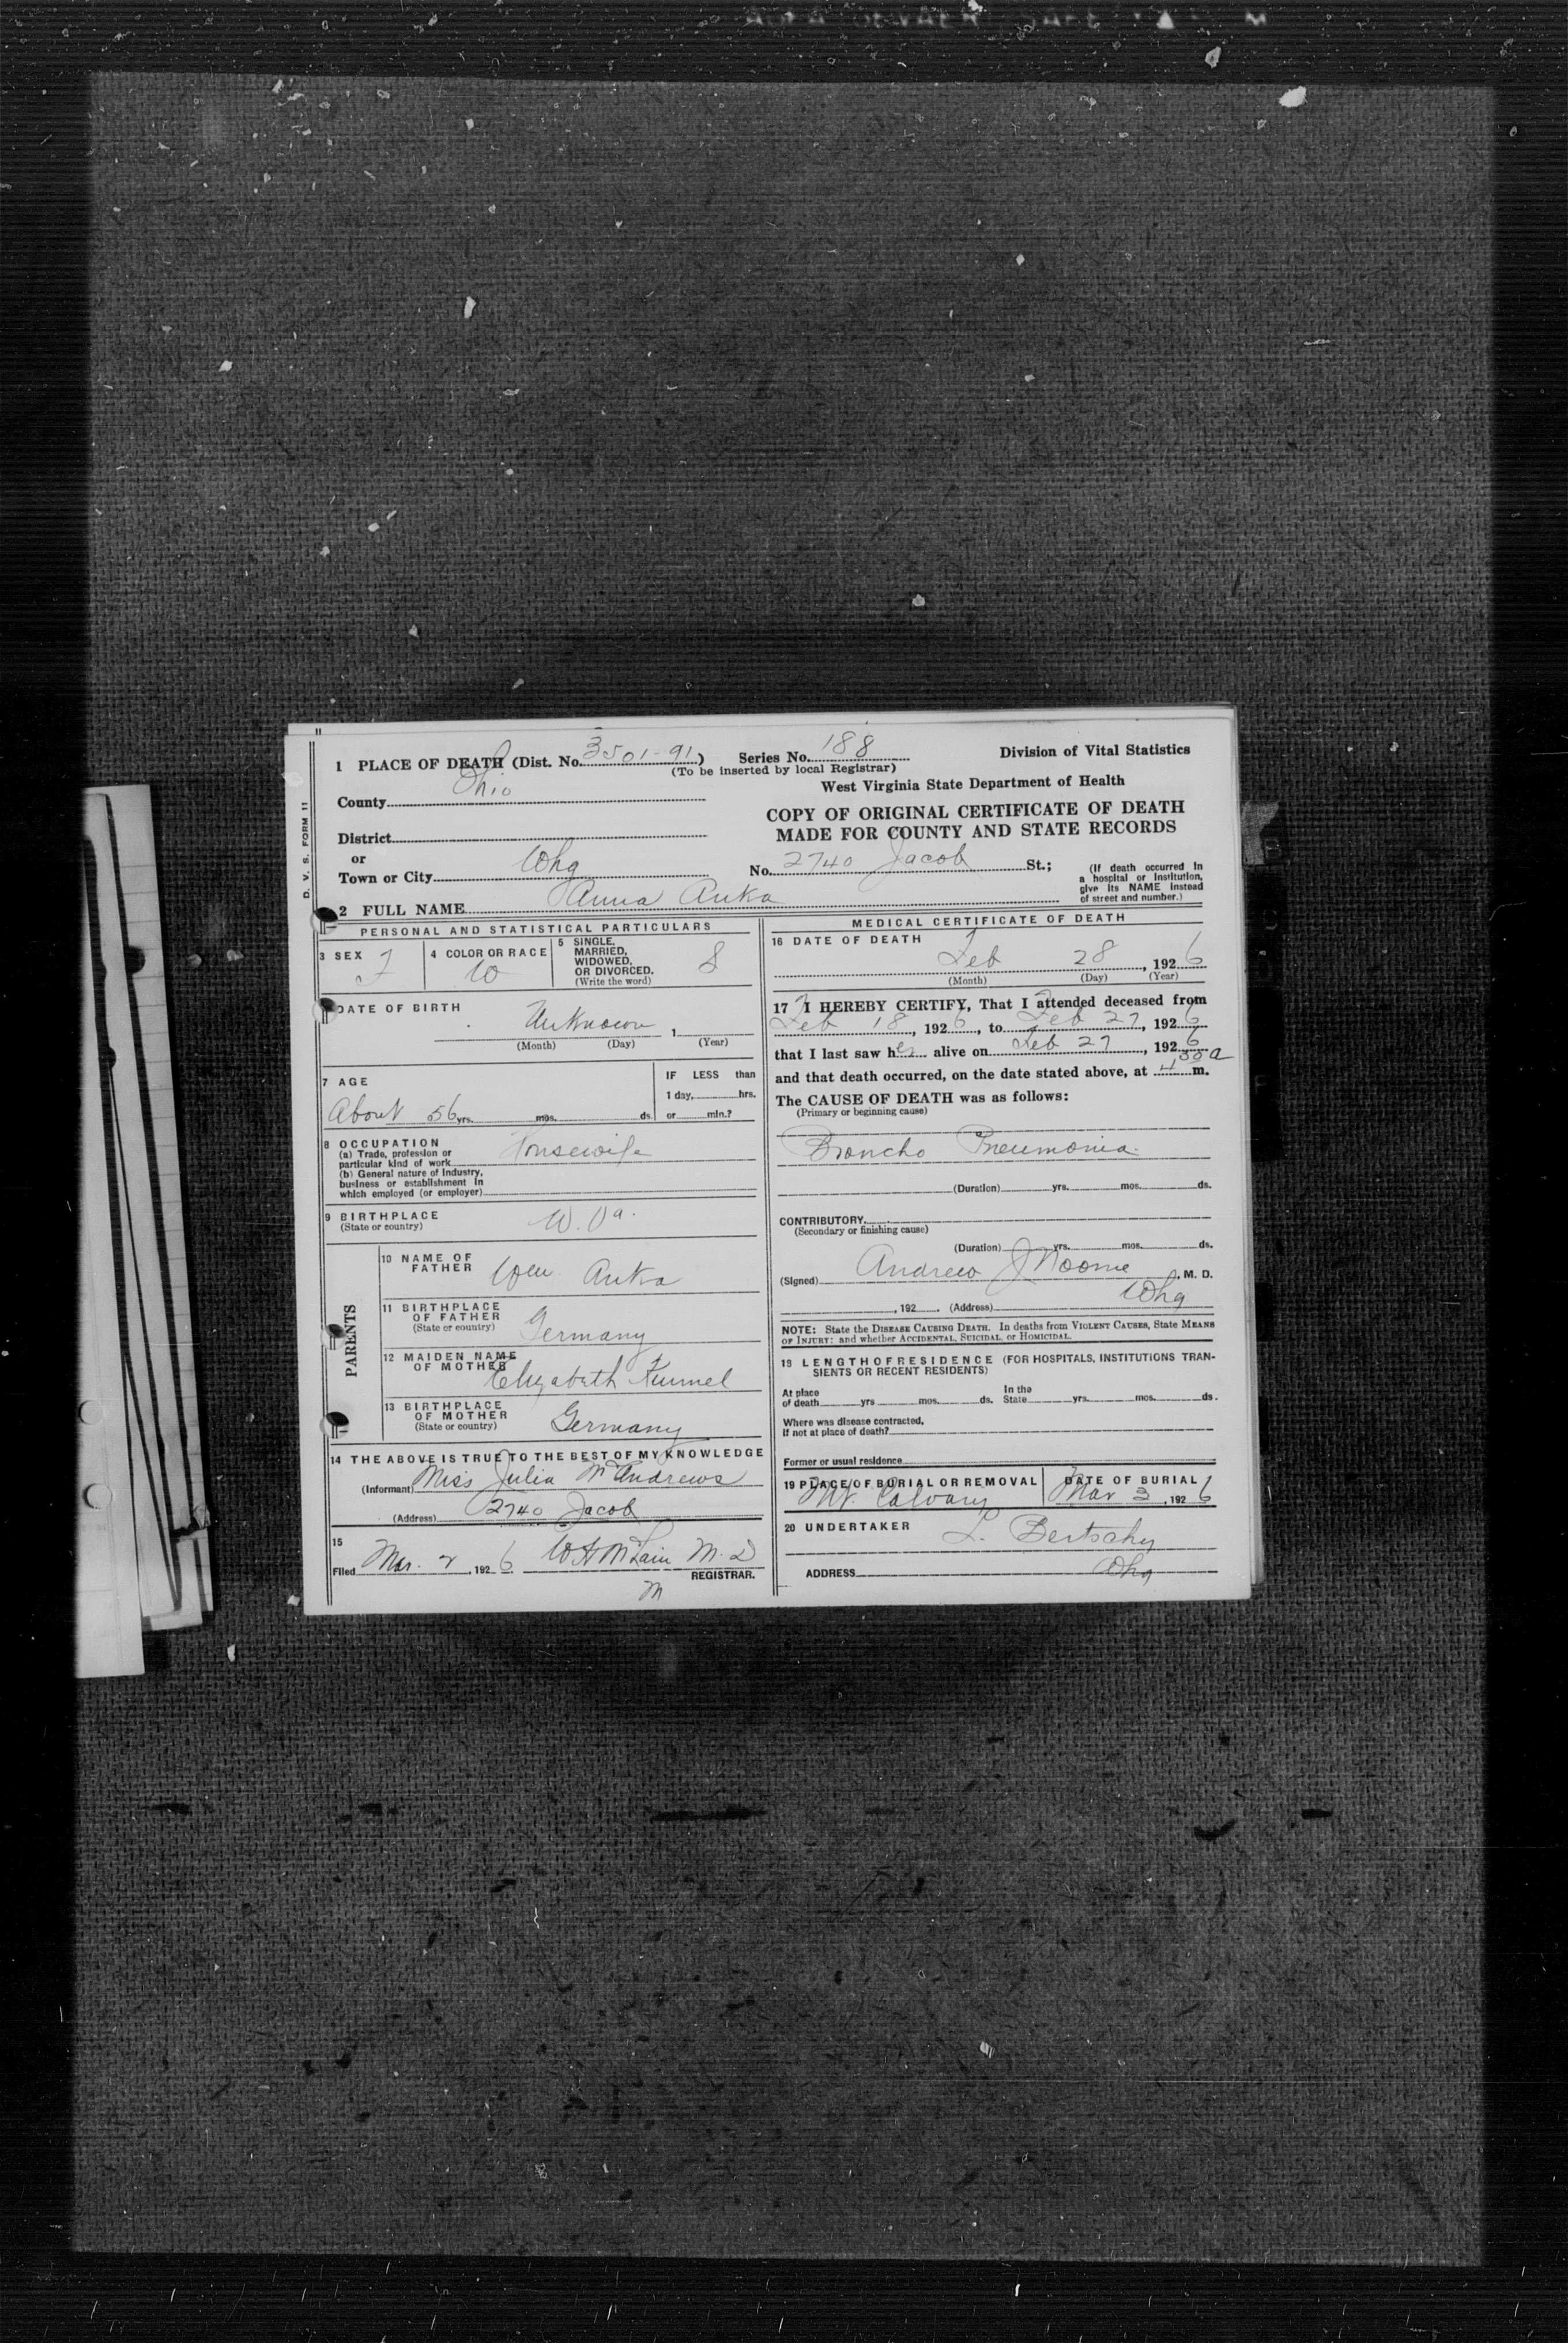 11
1 PLACE OF DEATH (Dist. No. 3501-91) Series No. 188 Division of Vital Statistics
(To be inserted by local Registrar)
West Virginia State Department of Health
County Ohio
COPY OF ORIGINAL CERTIFICATE OF DEATH
MADE FOR COUNTY AND STATE RECORDS
District
or
Town or City Whg No. 2740 Jacob St.; (If death occurred in a hospital or institution, give its NAME instead of street and number.)
2 FULL NAME Anna Anka
D. V. S. FORM 11
PERSONAL AND STATISTICAL PARTICULARS
3 SEX F
4 COLOR OR RACE W
5 SINGLE, MARRIED, WIDOWED, OR DIVORCED. (Write the word) S
DATE OF BIRTH
Unknown 1
(Month) (Day) (Year)
7 AGE
About 56 yrs. mos. ds.
IF LESS than
1 day, hrs.
or min.?
8 OCCUPATION
(a) Trade, profession or
particular kind of work Housewife
(b) General nature of industry,
business or establishment in
which employed (or employer)
9 BIRTHPLACE
(State or country) W. Va.
PARENTS
10 NAME OF
FATHER Wm Anka
11 BIRTHPLACE
OF FATHER
(State or country) Germany
12 MAIDEN NAME
OF MOTHER Elizabeth Kimmel
13 BIRTHPLACE
OF MOTHER
(State or country) Germany
14 THE ABOVE IS TRUE TO THE BEST OF MY KNOWLEDGE
(Informant) Miss Julia McAndrews
(Address) 2740 Jacob
15
Filed Mar. 2, 1926 W H McLain M. D
REGISTRAR.
M
MEDICAL CERTIFICATE OF DEATH
16 DATE OF DEATH
Feb 28, 1926
(Month) (Day) (Year)
17 I HEREBY CERTIFY, That I attended deceased from
Feb 18, 1926, to Feb 27, 1926
that I last saw her alive on Feb 27, 1926
and that death occurred, on the date stated above, at 4 30 a m.
The CAUSE OF DEATH was as follows:
(Primary or beginning cause)
Broncho Pneumonia
(Duration) yrs. mos. ds.
CONTRIBUTORY
(Secondary or finishing cause)
(Duration) yrs. mos. ds.
(Signed) Andrew J Noome, M. D.
, 192 . (Address) Whg
NOTE: State the DISEASE CAUSING DEATH. In deaths from VIOLENT CAUSES, State MEANS
OF INJURY: and whether ACCIDENTAL, SUICIDAL, or HOMICIDAL.
18 LENGTH OF RESIDENCE (FOR HOSPITALS, INSTITUTIONS TRAN-
SIENTS OR RECENT RESIDENTS)
At place
of death yrs mos. ds. In the State yrs. mos. ds.
Where was disease contracted,
if not at place of death?
Former or usual residence
19 PLACE OF BURIAL OR REMOVAL DATE OF BURIAL
Mt. Calvary Mar 3, 1926
20 UNDERTAKER L. Bertschy
ADDRESS Whg